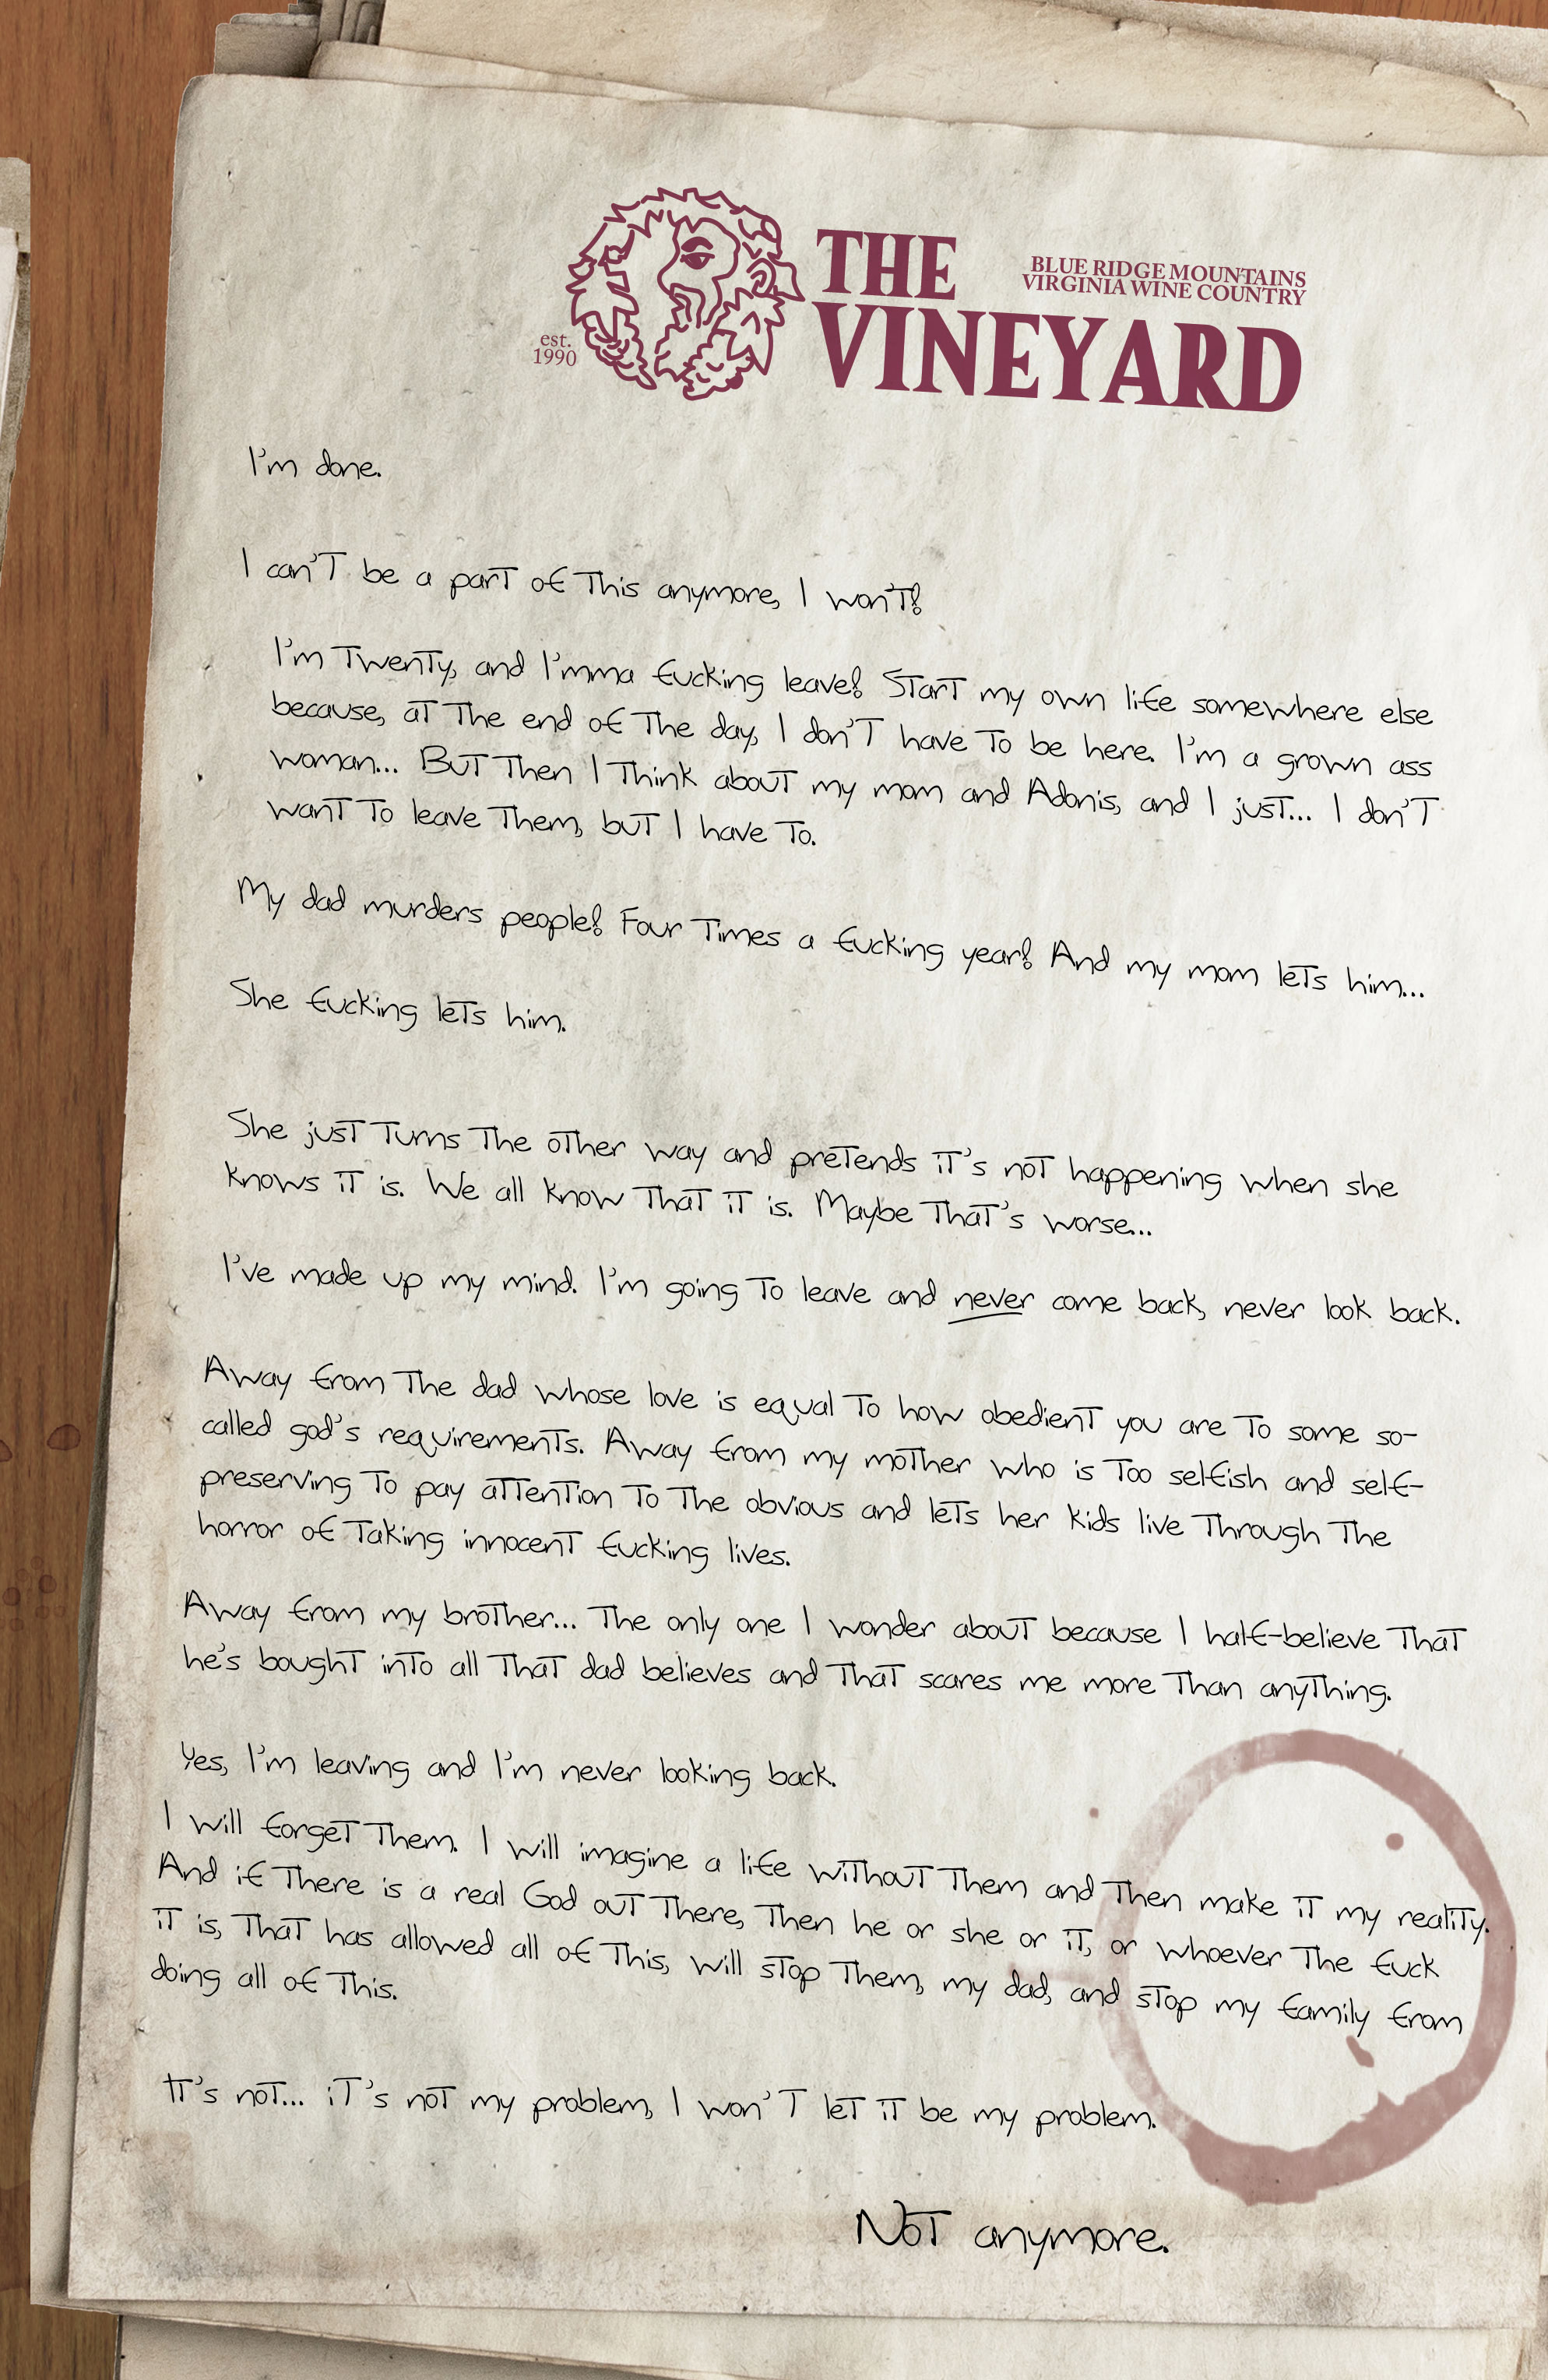 THE
BLUE RIDGE MOUNTAINS
VIRGINIA WINE COUNTRY
VINEYARD
est.
1990
I'm done.
I can't be a part of this anymore, I won't!
I'm twenty, and I'mma fucking leave! Start my own life somewhere else
because, at the end of the day, I don't have to be here. I'm a grown ass
woman... But then I think about my mom and Adonis, and I just... I don't
want to leave them, but I have to.
My dad murders people! Four times a fucking year! And my mom lets him...
She fucking lets him.
She just turns the other way and pretends it's not happening when she
knows it is. We all know that it is. Maybe that's worse...
I've made up my mind. I'm going to leave and never come back, never look back.
Away from the dad whose love is equal to how obedient you are to some so-
called god's requirements. Away from my mother who is too selfish and self-
preserving to pay attention to the obvious and lets her kids live through the
horror of taking innocent fucking lives.
Away from my brother... The only one I wonder about because I half-believe that
he's bought into all that dad believes and that scares me more than anything.
Yes, I'm leaving and I'm never looking back.
I will forget them. I will imagine a life without them and then make it my reality.
And if there is a real God out there, then he or she or it, or whoever the fuck
it is, that has allowed all of this, will stop them, my dad, and stop my family from
doing all of this.
It's not... it's not my problem, I won't let it be my problem.
Not anymore.